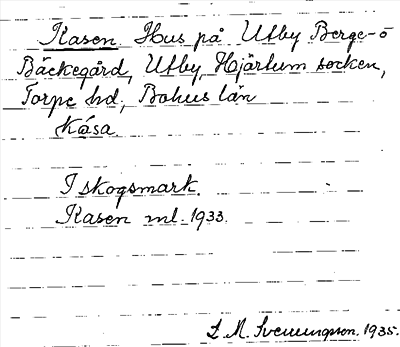 Kasen. Hus på Utby Berge-o
Bäckegård, Utby, Hjärtum socken,
Torpe hd, Bohus län
Kåsa
I skogsmark.
Kasen ml. 1933.
L. M. Svenungsson. 1935.